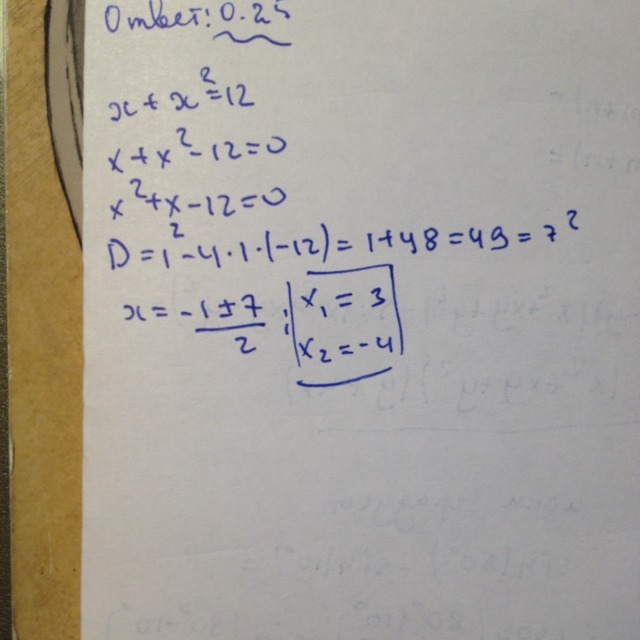 Ответ: 0.25
x + x² = 12
x + x² - 12 = 0
x² + x - 12 = 0
D = 1² - 4·1·(-12) = 1 + 48 = 49 = 7²
x = (-1 ± 7)/2 ; x₁ = 3
x₂ = -4